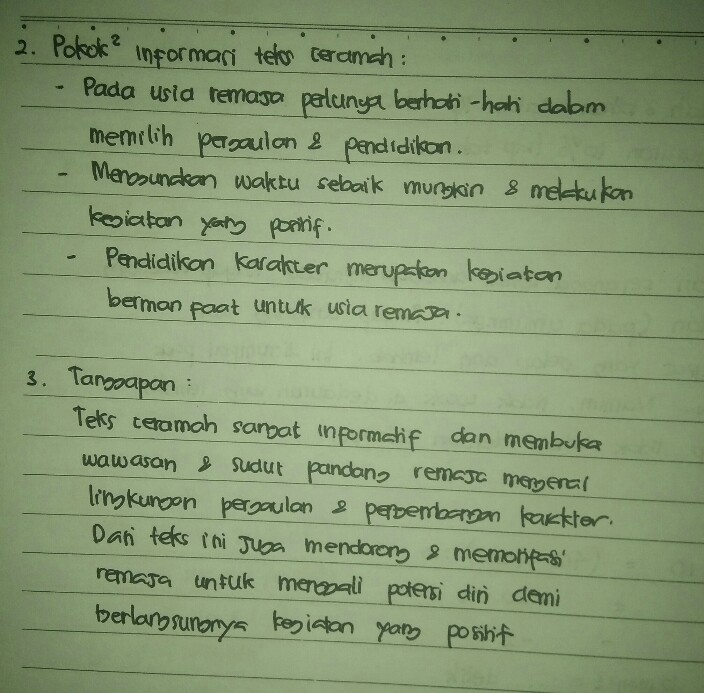 2. Pokok² informasi teks ceramah :
- Pada usia remaja perlunya berhati-hati dalam
memilih pergaulan & pendidikan.
- Menggunakan waktu sebaik mungkin & melakukan
kegiatan yang positif.
- Pendidikan karakter merupakan kegiatan
bermanfaat untuk usia remaja.
3. Tanggapan :
Teks ceramah sangat informatif dan membuka
wawasan & sudut pandang remaja mengenai
lingkungan pergaulan & perkembangan karakter.
Dari teks ini juga mendorong & memotifasi
remaja untuk menggali potensi diri demi
berlangsungnya kegiatan yang positif